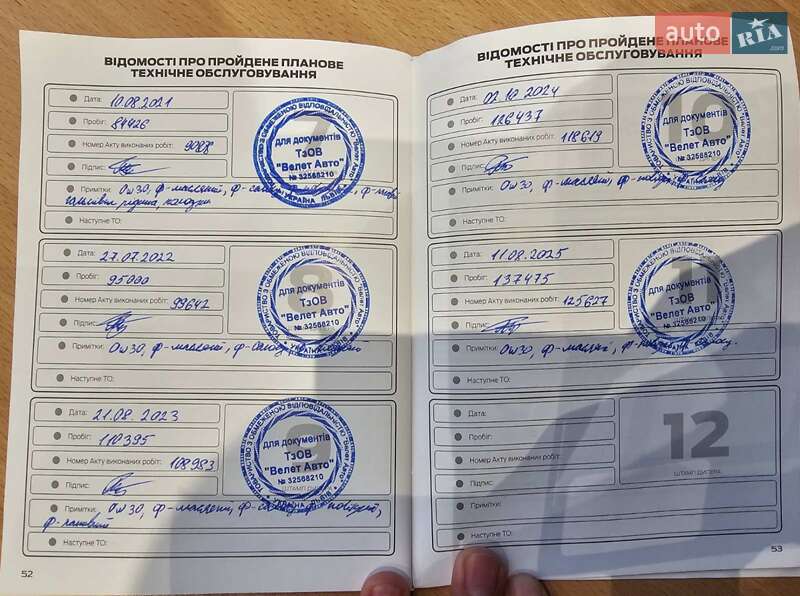 auto RIA .com
ВІДОМОСТІ ПРО ПРОЙДЕНЕ ПЛАНОВЕ
ТЕХНІЧНЕ ОБСЛУГОВУВАННЯ
Дата: 10.08.2021
Пробіг: 84426
Номер Акту виконаних робіт: 9088
Підпис:
Примітки: 0w30, ф-масляний,
гальмівна рідина, колодки
Наступне ТО:
для документів
ТзОВ
"Велет Авто"
№ 32568210
Дата: 27.07.2022
Пробіг: 95000
Номер Акту виконаних робіт: 99642
Підпис:
Примітки: 0w30, ф-масляний,
Наступне ТО:
8
для документів
ТзОВ
"Велет Авто"
№ 32568210
Дата: 21.08.2023
Пробіг: 110395
Номер Акту виконаних робіт: 108983
Підпис:
Примітки: 0w30, ф-масляний,
Наступне ТО:
9
для документів
ТзОВ
"Велет Авто"
№ 32568210
52
ВІДОМОСТІ ПРО ПРОЙДЕНЕ ПЛАНОВЕ
ТЕХНІЧНЕ ОБСЛУГОВУВАННЯ
Дата: 02.10.2024
Пробіг: 126437
Номер Акту виконаних робіт: 118619
Підпис:
Примітки: 0w30, ф-масляний,
Наступне ТО:
10
для документів
ТзОВ
"Велет Авто"
№ 32568210
Дата: 11.08.2025
Пробіг: 137475
Номер Акту виконаних робіт: 125627
Підпис:
Примітки: 0w30, ф-масляний,
Наступне ТО:
11
для документів
ТзОВ
"Велет Авто"
№ 32568210
Дата:
Пробіг:
Номер Акту виконаних робіт:
Підпис:
Примітки:
Наступне ТО:
12
ШТАМП ДИЛЕРА
53